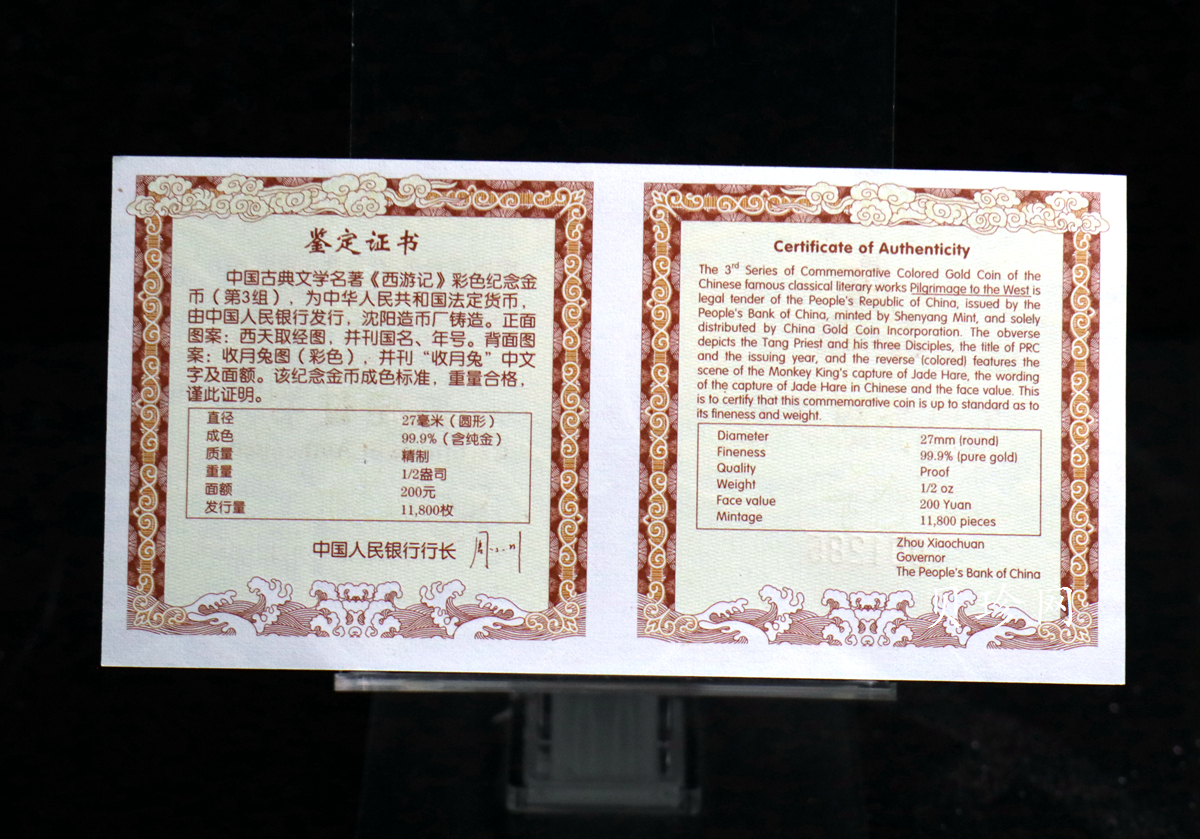 鉴定证书
中国古典文学名著《西游记》彩色纪念金
币（第3组），为中华人民共和国法定货币，
由中国人民银行发行，沈阳造币厂铸造。正面
图案：西天取经图，并刊国名、年号。背面图
案：收月兔图（彩色），并刊“收月兔”中文
字及面额。该纪念金币成色标准，重量合格，
谨此证明。
直径 27毫米（圆形）
成色 99.9%（含纯金）
质量 精制
重量 1/2盎司
面额 200元
发行量 11,800枚
中国人民银行行长
Certificate of Authenticity
The 3rd Series of Commemorative Colored Gold Coin of the
Chinese famous classical literary works Pilgrimage to the West is
legal tender of the People's Republic of China, issued by the
People's Bank of China, minted by Shenyang Mint, and solely
distributed by China Gold Coin Incorporation. The obverse
depicts the Tang Priest and his three Disciples, the title of PRC
and the issuing year, and the reverse (colored) features the
scene of the Monkey King's capture of Jade Hare, the wording
of the capture of Jade Hare in Chinese and the face value. This
is to certify that this commemorative coin is up to standard as to
its fineness and weight.
Diameter 27mm (round)
Fineness 99.9% (pure gold)
Quality Proof
Weight 1/2 oz
Face value 200 Yuan
Mintage 11,800 pieces
Zhou Xiaochuan
Governor
The People's Bank of China